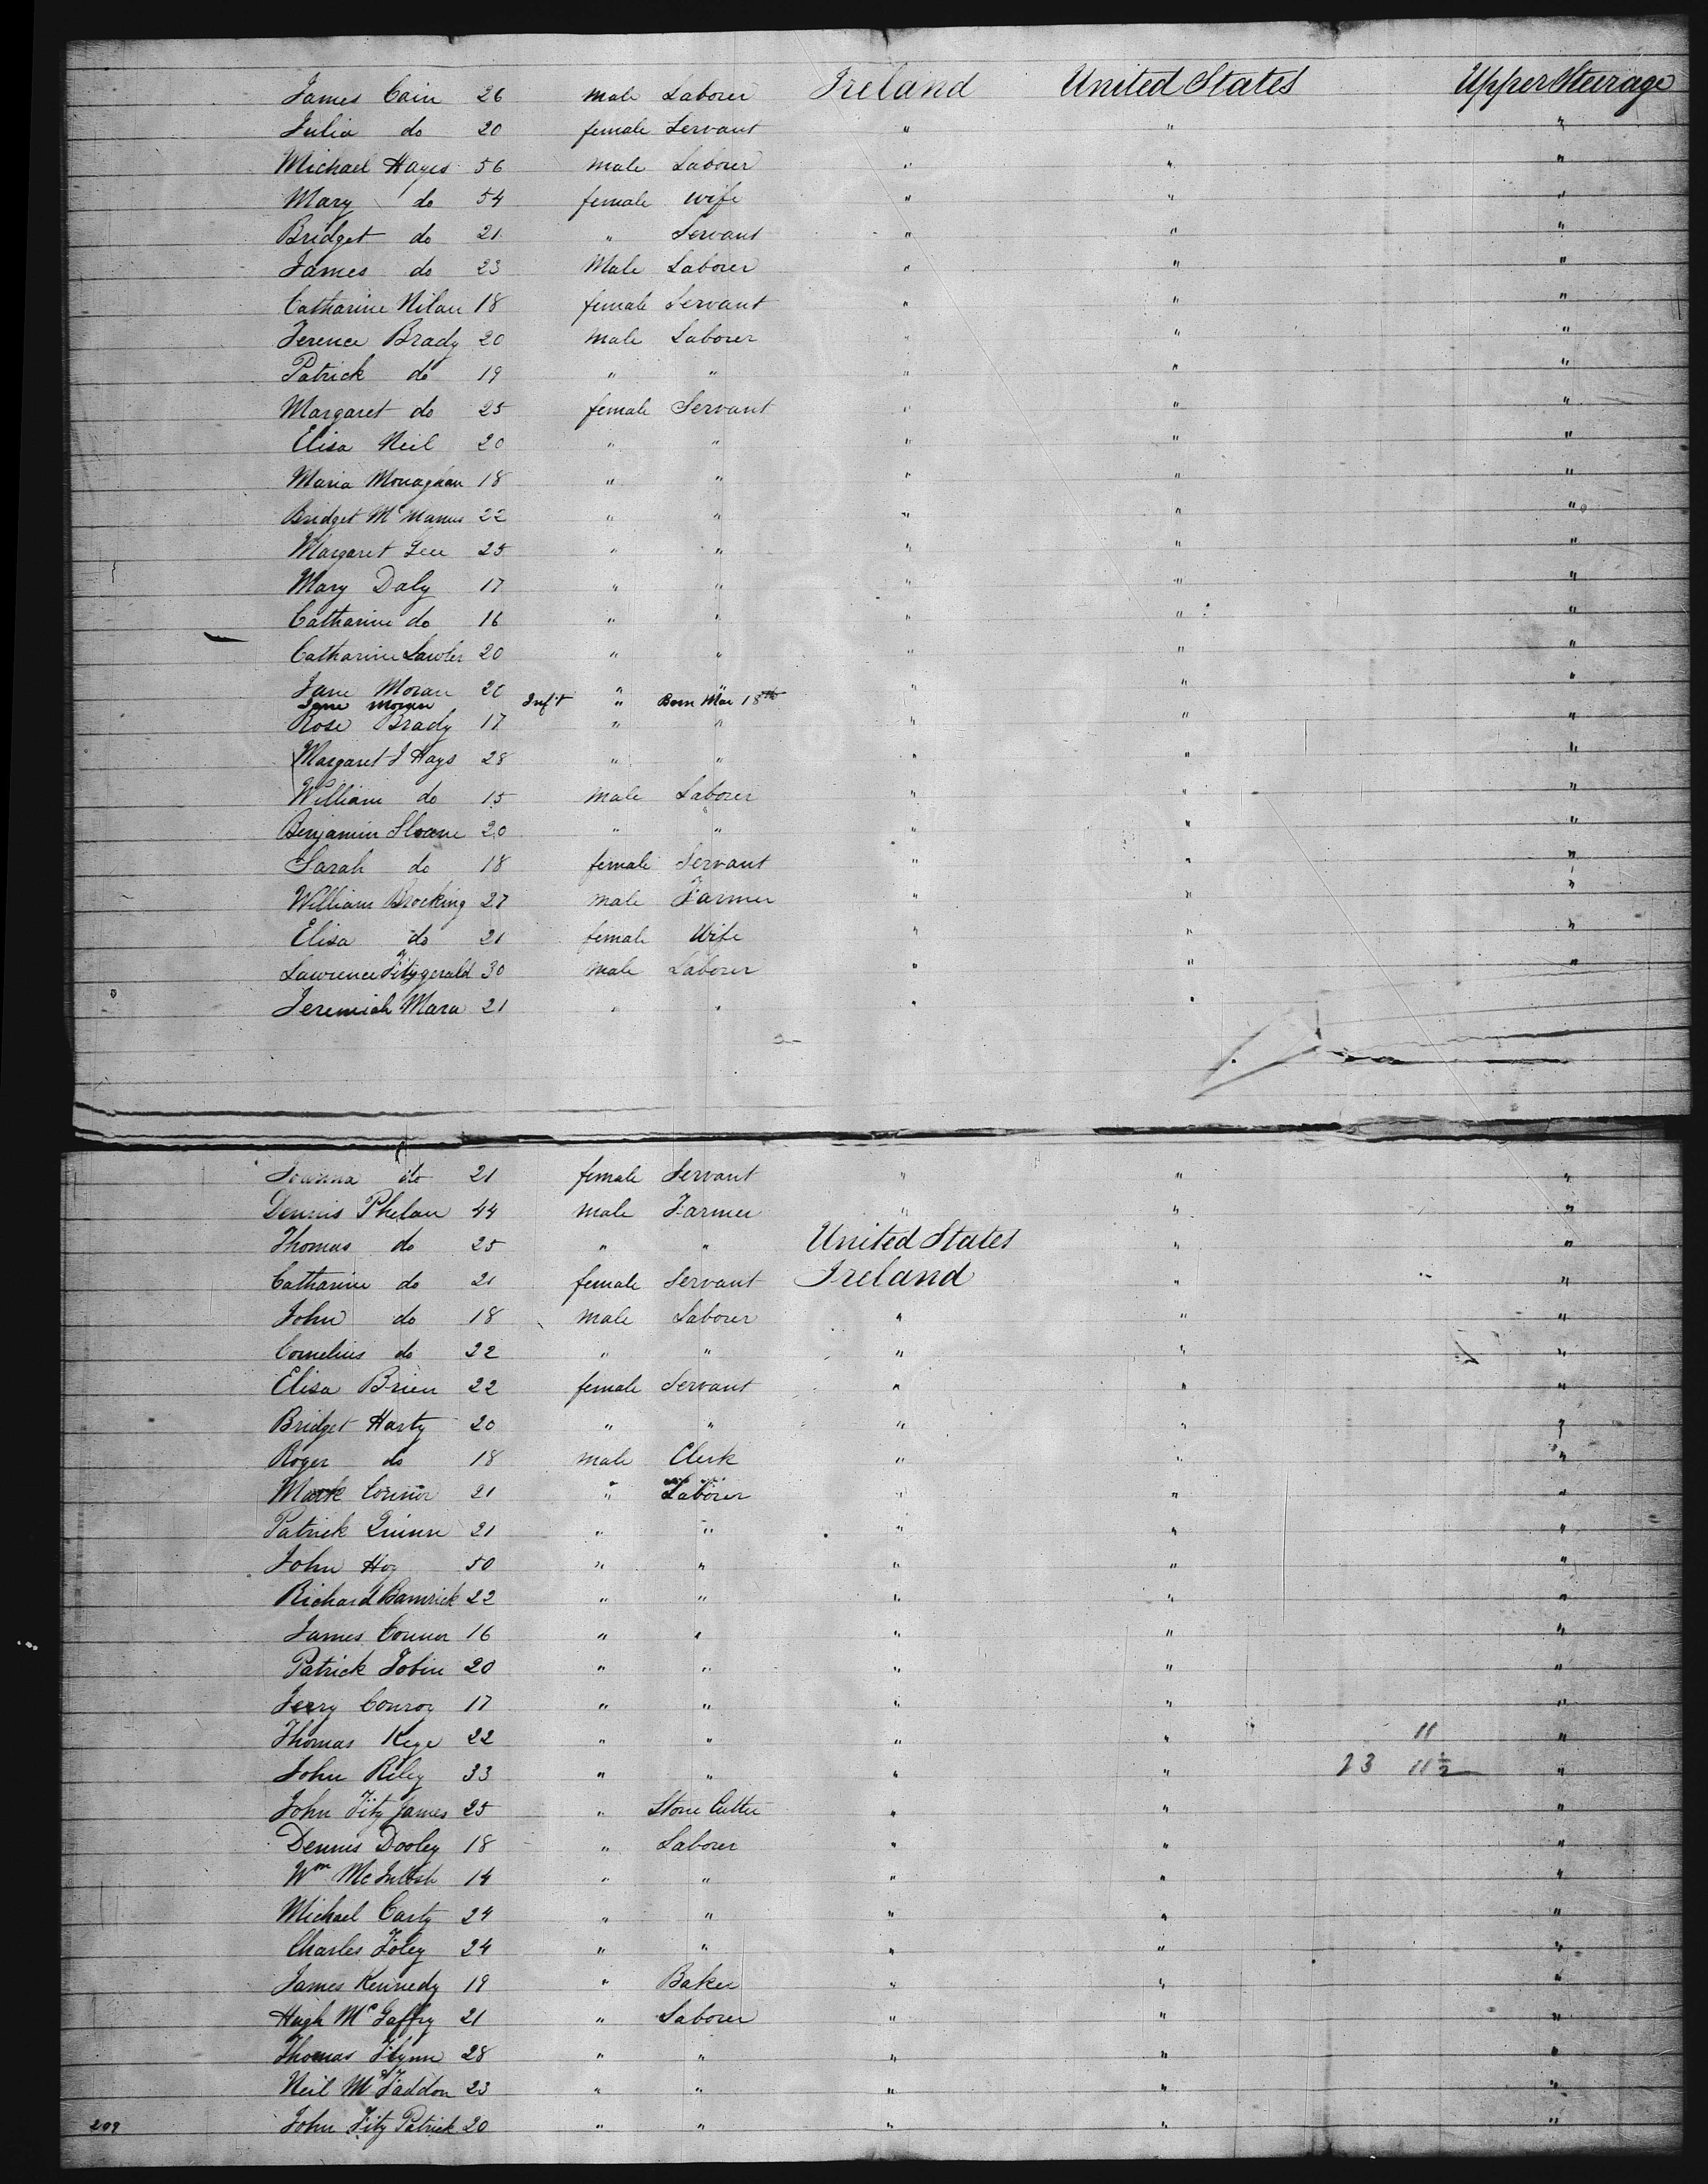 James Cain 26 male Laborer Ireland United States Upper Steerage
Julia do 20 female Servant " " "
Michael Hayes 56 male Laborer " " "
Mary do 54 female wife " " "
Bridget do 21 " Servant " " "
James do 23 Male Laborer " " "
Catharine Nilan 18 female Servant " " "
Terence Brady 20 male Laborer " " "
Patrick do 19 " " " " "
Margaret do 25 female Servant " " "
Elisa Neil 20 " " " " "
Maria Monaghan 18 " " " " "
Bridget McManus 22 " " " " "
Margaret Lee 25 " " " " "
Mary Daly 17 " " " " "
Catharine do 16 " " " " "
Catharine Lawler 20 " " " " "
Jane Moran 20 " " " " "
Jane Moran Inf't " Born Mar 18th
Rose Brady 17 " " " " "
Margaret J Hays 28 " " " " "
William do 15 male Laborer " " "
Benjamin Sloane 20 " " " " "
Sarah do 18 female Servant " " "
William Brocking 27 male Farmer " " "
Elisa do 21 female Wife " " "
Lawrence Fitzgerald 30 male Laborer " " "
Jeremiah Mara 21 " " " "
Joanna do 21 female Servant " " "
Dennis Phelan 44 male Farmer " " "
Thomas do 25 " " United States " "
Catharine do 21 female Servant Ireland " "
John do 18 male Laborer " " "
Cornelius do 22 " " " " "
Elisa Brien 22 female Servant " " "
Bridget Harty 20 " " " " "
Roger do 18 male Clerk " " "
Mark Connor 21 " Laborer " " "
Patrick Quinn 21 " " " " "
John Hoy 50 " " " " "
Richard Bamrick 22 " " " " "
James Connor 16 " " " " "
Patrick Tobin 20 " " " " "
Jerry Conroy 17 " " " " "
Thomas Kege 22 " " " " 11 "
John Riley 33 " " " " 23 11½ "
John Fitz James 25 " Stone Cutter " " "
Dennis Dooley 18 " Laborer " " "
Wm McIntosh 14 " " " " "
Michael Carty 24 " " " " "
Charles Foley 24 " " " " "
James Kennedy 19 " Baker " " "
Hugh McGaffry 21 " Laborer " " "
Thomas Flynn 28 " " " " "
Neil McFaddon 23 " " " " "
209 John Fitz Patrick 20 " " " " "